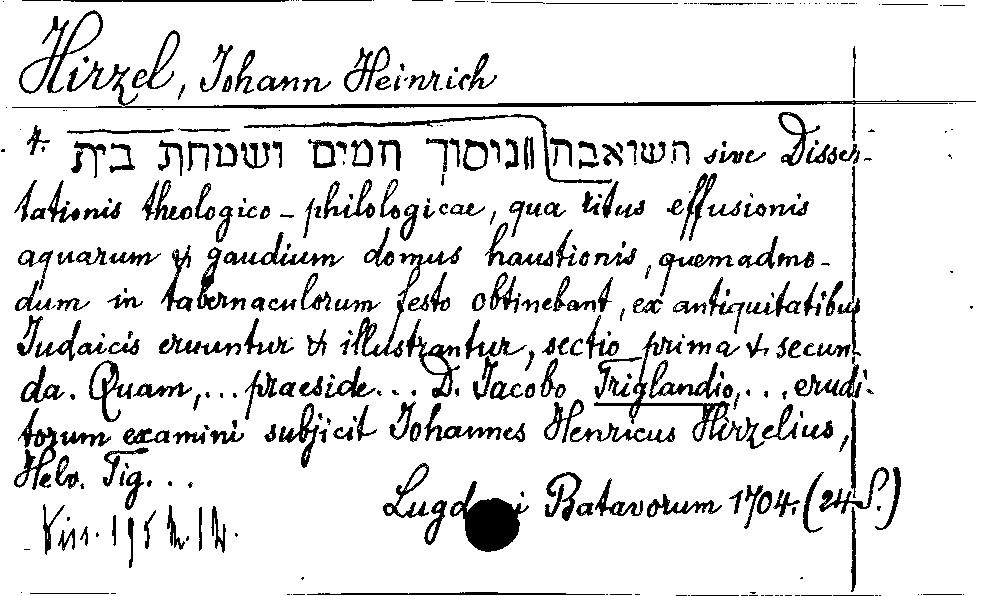 Hirzel, Johann Heinrich
4. ניסוך המים ושמחת בית השואבה sive Disser-
tationis theologico-philologicae, qua ritus effusionis
aquarum & gaudium domus haustionis, quemadmo-
dum in tabernaculorum festo obtinebant, ex antiquitatibus
Judaicis eruuntur & illustrantur, sectio prima & secun-
da. Quam,... praeside... D. Jacobo Triglandio,... erudi-
torum examini subjicit Johannes Henricus Hirzelius,
Helv. Tig...
Lugduni Batavorum 1704. (24 S.)
Diss. 195